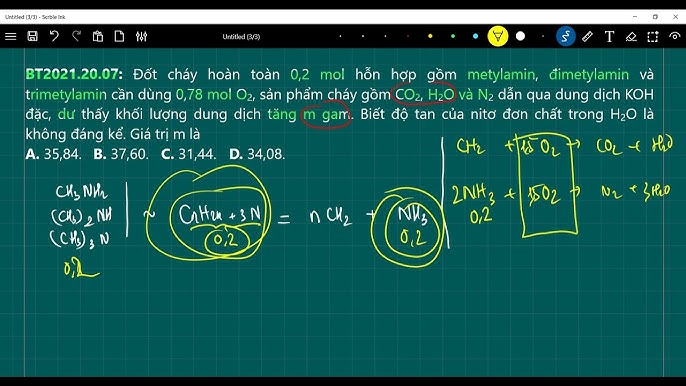 Untitled (3/3) - Scrble Ink
Untitled (3/3)
BT2021.20.07: Đốt cháy hoàn toàn 0,2 mol hỗn hợp gồm metylamin, đimetylamin và
trimetylamin cần dùng 0,78 mol O₂, sản phẩm cháy gồm CO₂, H₂O và N₂ dẫn qua dung dịch KOH
đặc, dư thấy khối lượng dung dịch tăng m gam. Biết độ tan của nitơ đơn chất trong H₂O là
không đáng kể. Giá trị m là
A. 35,84. B. 37,60. C. 31,44. D. 34,08.
CH₂ + 1,5O₂ → CO₂ + H₂O
2NH₃ + 1,5O₂ → N₂ + 3H₂O
0,2
CH₃NH₂
(CH₃)₂NH
(CH₃)₃N
0,2
~ CnH2n+3N = nCH₂ + NH₃
0,2 0,2